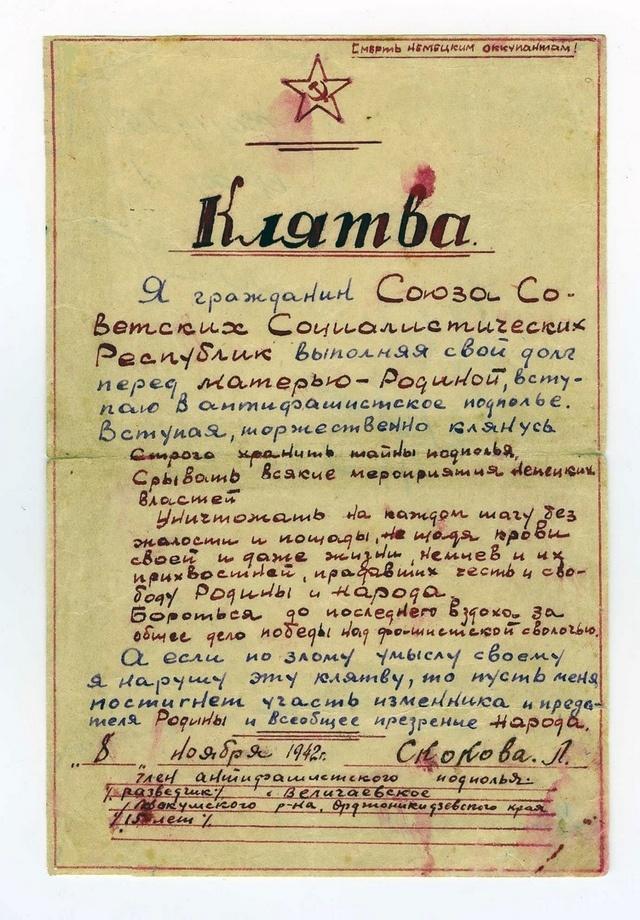 Смерть немецким оккупантам!
Клятва.
Я гражданин Союза Со-
ветских Социалистических
Республик выполняя свой долг
перед матерью-Родиной, всту-
паю в антифашистское подполье.
Вступая, торжественно клянусь
Строго хранить тайны подполья,
Срывать всякие мероприятия немецких
властей
Уничтожать на каждом шагу без
жалости и пощады, не щадя крови
своей и даже жизни, немцев и их
прихвостней, продавших честь и сво-
боду Родины и народа.
Бороться до последнего вздоха за
общее дело победы над фашистской сволочью.
А если по злому умыслу своему
я нарушу эту клятву, то пусть меня
постигнет участь изменника и преда-
теля Родины и всеобщее презрение народа.
„8„ ноября 1942г. Скокова. Л.
Член антифашистского подполья.
/разведчик/ с Величаевское
р-на, Орджоникидзевского края
лет/.